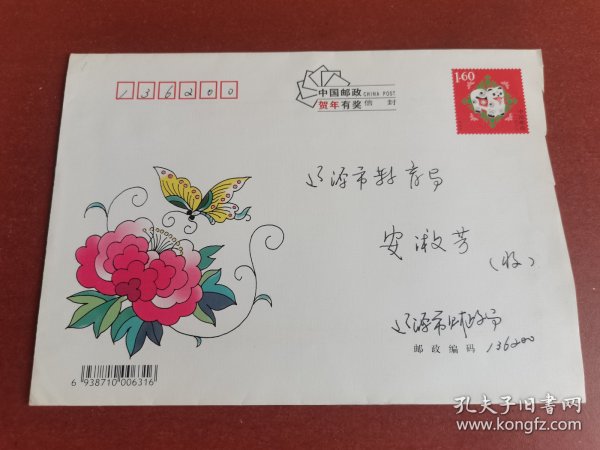 136200
中国邮政 CHINA POST
贺年有奖 信封
1.60
辽源市教育局
安淑芳
（收）
辽源市财政局
邮政编码 136200
6 938710 006316
孔夫子旧书网
www.kongfz.com